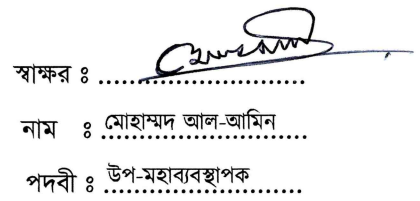 স্বাক্ষর ঃ ..............................
নাম ঃ মোহাম্মদ আল-আমিন
পদবী ঃ উপ-মহাব্যবস্থাপক